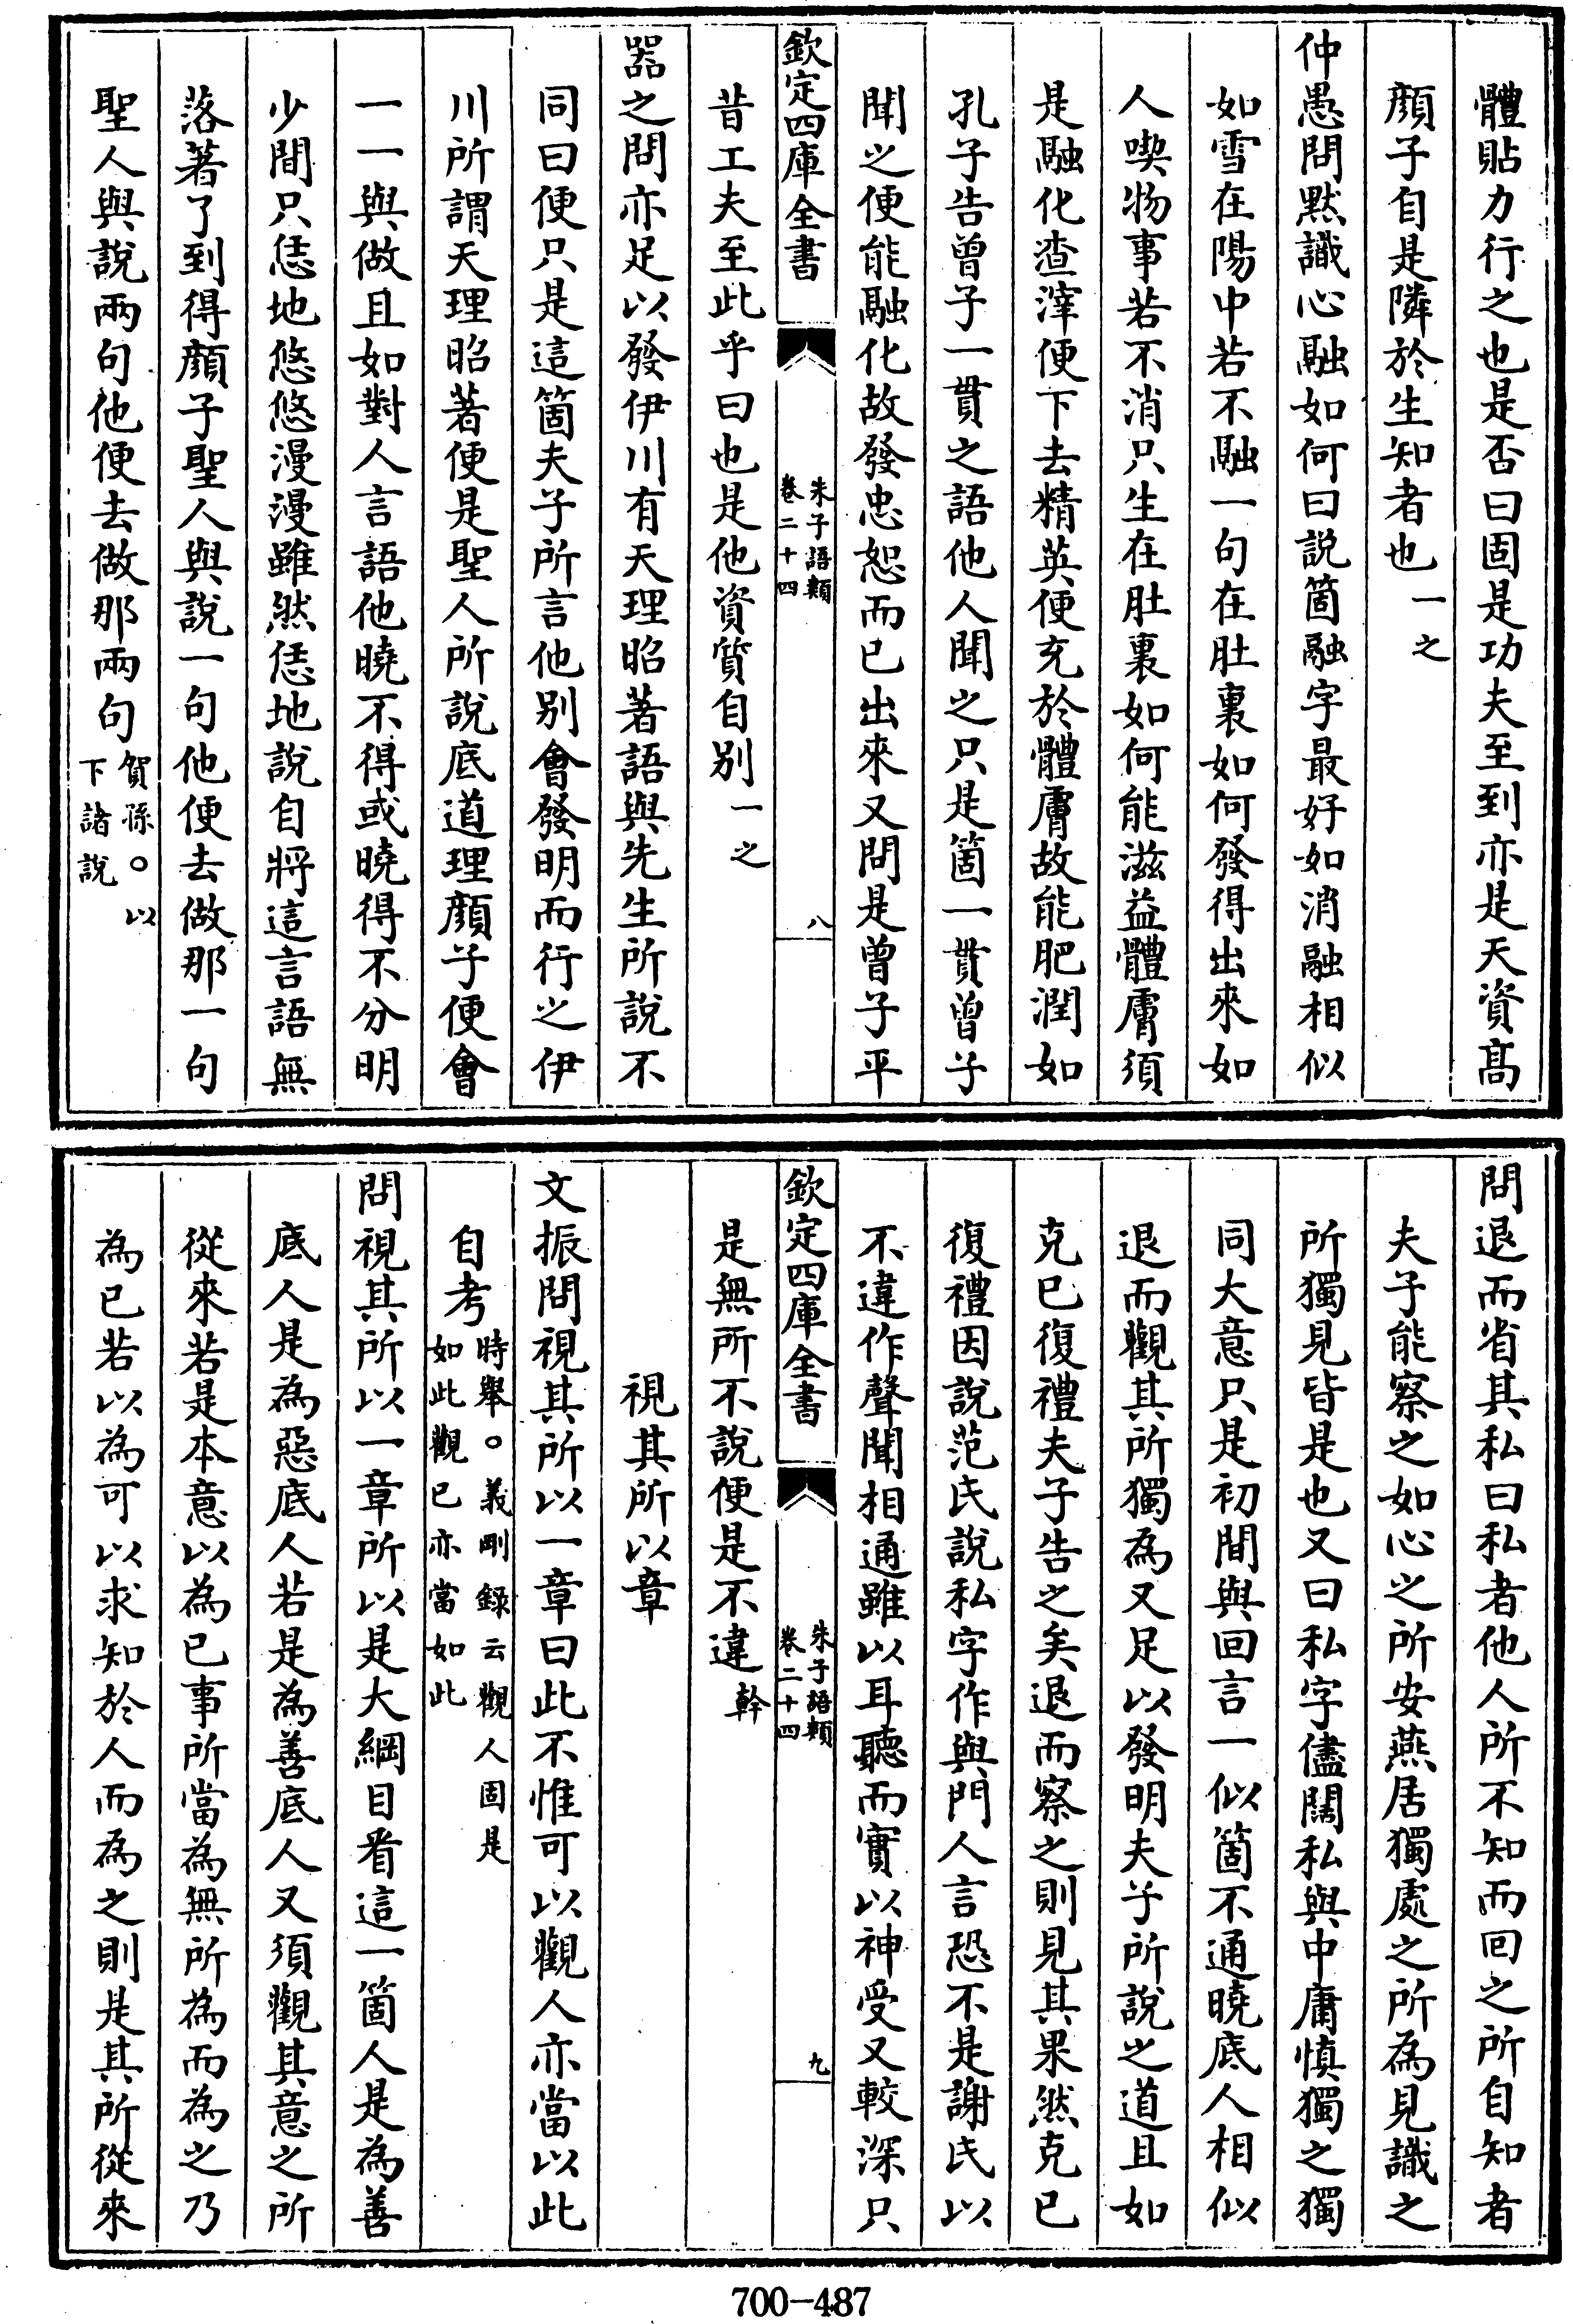 體貼力行之也是否曰固是功夫至到亦是天資髙
顔子自是隣於生知者也一之
仲愚問黙識心融如何曰説箇融字最好如消融相似
如雪在陽中若不融一句在肚裏如何發得出來如
人喫物事若不消只生在肚裏如何能滋益體膚須
是融化渣滓便下去精英便充於體膚故能肥潤如
孔子告曾子一貫之語他人聞之只是箇一貫曾子
聞之便能融化故發忠恕而已出來又問是曾子平
欽定四庫全書
朱子語類
卷二十四
八
昔工夫至此乎曰也是他資質自别一之
器之問亦足以發伊川有天理昭著語與先生所説不
同曰便只是這箇夫子所言他别㑹發明而行之伊
川所謂天理昭著便是聖人所説底道理顔子便㑹
一一與做且如對人言語他曉不得或曉得不分明
少間只恁地悠悠漫漫雖然恁地說自將這言語無
落著了到得顔子聖人與說一句他便去做那一句
聖人與說兩句他便去做那兩句賀孫○以
下諸說
問退而省其私曰私者他人所不知而回之所自知者
夫子能察之如心之所安燕居獨處之所為見識之
所獨見皆是也又曰私字儘闊私與中庸慎獨之獨
同大意只是初間與回言一似箇不通曉底人相似
退而觀其所獨為又足以發明夫子所說之道且如
克已復禮夫子告之矣退而察之則見其果然克已
復禮因說范氏說私字作與門人言恐不是謝氏以
不違作聲聞相通雖以耳聽而實以神受又較深只
欽定四庫全書
朱子語類
卷二十四
九
是無所不說便是不違榦
視其所以章
文振問視其所以一章曰此不惟可以觀人亦當以此
自考時舉○義剛録云觀人固是
如此觀已亦當如此
問視其所以一章所以是大綱目看這一箇人是為善
底人是為惡底人若是為善底人又須觀其意之所
從來若是本意以為已事所當為無所為而為之乃
為已若以為可以求知於人而為之則是其所從來
700-487